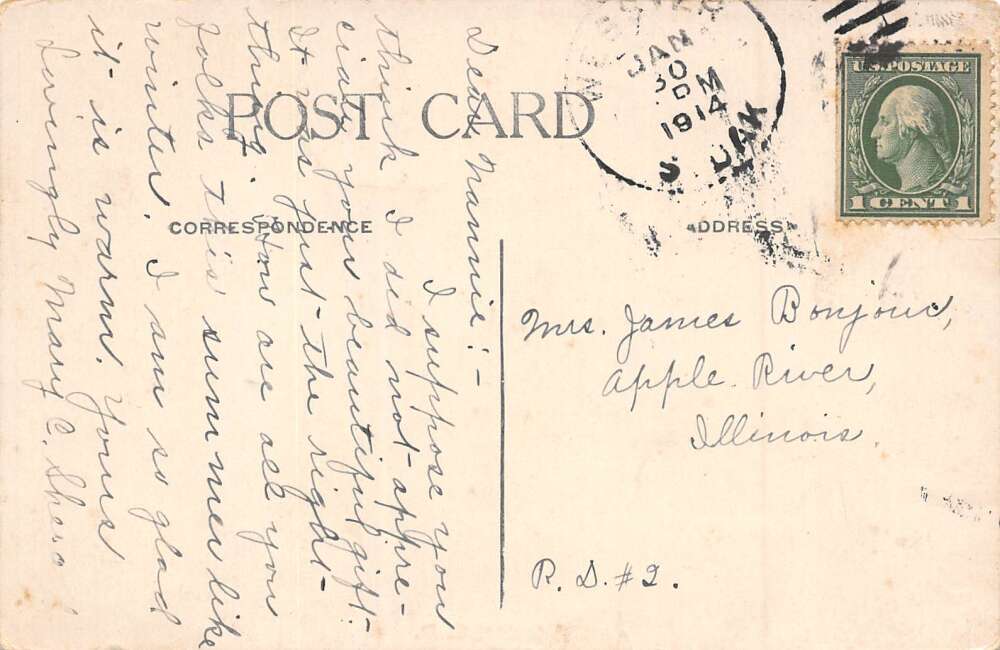 POST CARD
CORRESPONDENCE
ADDRESS
JAN
30
PM
1914
S. DAK
U.S. POSTAGE
1 CENT 1
Dear Nannie:-
I suppose you
think I did not appre-
ciate your beautiful gift-
It was just the right
thing. How are all you
folks this summer like
winter. I am so glad
it is warm. Yours
Lovingly Mary C.
Mrs. James Bonjour,
Apple River,
Illinois.
R. D. #2.